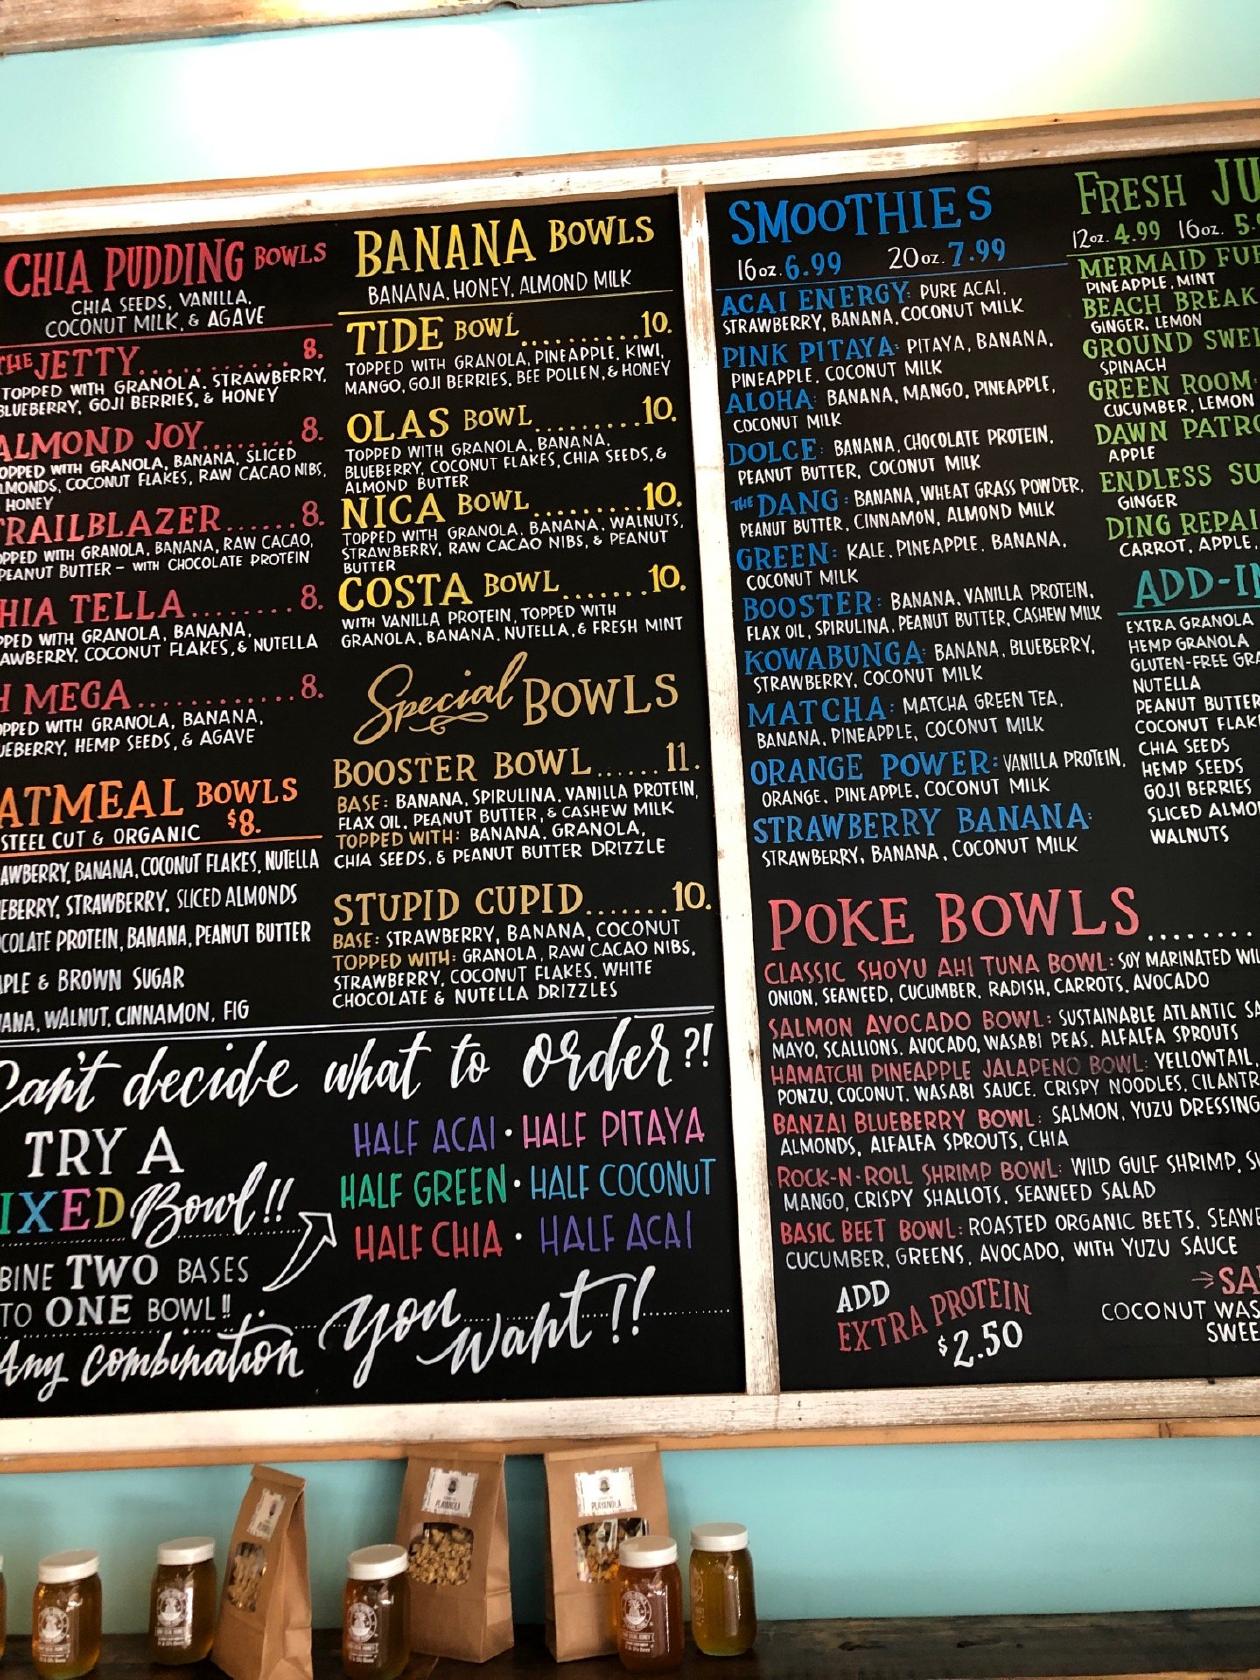 CHIA PUDDING BOWLS
CHIA SEEDS, VANILLA,
COCONUT MILK, & AGAVE
THE JETTY............8.
TOPPED WITH GRANOLA, STRAWBERRY,
BLUEBERRY, GOJI BERRIES, & HONEY
ALMOND JOY........8.
TOPPED WITH GRANOLA, BANANA, SLICED
ALMONDS, COCONUT FLAKES, RAW CACAO NIBS,
HONEY
TRAILBLAZER......8.
TOPPED WITH GRANOLA, BANANA, RAW CACAO,
PEANUT BUTTER - WITH CHOCOLATE PROTEIN
HIA TELLA........8.
PPED WITH GRANOLA, BANANA,
AWBERRY, COCONUT FLAKES, & NUTELLA
H MEGA...........8.
OPPED WITH GRANOLA, BANANA,
UEBERRY, HEMP SEEDS, & AGAVE
ATMEAL BOWLS
STEEL CUT & ORGANIC $8.
AWBERRY, BANANA, COCONUT FLAKES, NUTELLA
EBERRY, STRAWBERRY, SLICED ALMONDS
COLATE PROTEIN, BANANA, PEANUT BUTTER
PLE & BROWN SUGAR
ANA, WALNUT, CINNAMON, FIG
BANANA BOWLS
BANANA, HONEY, ALMOND MILK
TIDE BOWL..........10.
TOPPED WITH GRANOLA, PINEAPPLE, KIWI,
MANGO, GOJI BERRIES, BEE POLLEN, & HONEY
OLAS BOWL..........10.
TOPPED WITH GRANOLA, BANANA,
BLUEBERRY, COCONUT FLAKES, CHIA SEEDS, &
ALMOND BUTTER
NICA BOWL..........10.
TOPPED WITH GRANOLA, BANANA, WALNUTS,
STRAWBERRY, RAW CACAO NIBS, & PEANUT
BUTTER
COSTA BOWL.......10.
WITH VANILLA PROTEIN, TOPPED WITH
GRANOLA, BANANA, NUTELLA, & FRESH MINT
Special BOWLS
BOOSTER BOWL......11.
BASE: BANANA, SPIRULINA, VANILLA PROTEIN,
FLAX OIL, PEANUT BUTTER, & CASHEW MILK
TOPPED WITH: BANANA, GRANOLA,
CHIA SEEDS, & PEANUT BUTTER DRIZZLE
STUPID CUPID.......10.
BASE: STRAWBERRY, BANANA, COCONUT
TOPPED WITH: GRANOLA, RAW CACAO NIBS,
STRAWBERRY, COCONUT FLAKES, WHITE
CHOCOLATE & NUTELLA DRIZZLES
Can't decide what to order?!
TRY A
IXED Bowl!!
BINE TWO BASES
TO ONE BOWL!!
HALF ACAI • HALF PITAYA
HALF GREEN • HALF COCONUT
HALF CHIA • HALF ACAI
Any combination you want!!
SMOOTHIES
16oz. 6.99 20oz. 7.99
ACAI ENERGY: PURE ACAI,
STRAWBERRY, BANANA, COCONUT MILK
PINK PITAYA: PITAYA, BANANA,
PINEAPPLE, COCONUT MILK
ALOHA: BANANA, MANGO, PINEAPPLE,
COCONUT MILK
DOLCE: BANANA, CHOCOLATE PROTEIN,
PEANUT BUTTER, COCONUT MILK
THE DANG: BANANA, WHEAT GRASS POWDER,
PEANUT BUTTER, CINNAMON, ALMOND MILK
GREEN: KALE, PINEAPPLE, BANANA,
COCONUT MILK
BOOSTER: BANANA, VANILLA PROTEIN,
FLAX OIL, SPIRULINA, PEANUT BUTTER, CASHEW MILK
KOWABUNGA: BANANA, BLUEBERRY,
STRAWBERRY, COCONUT MILK
MATCHA: MATCHA GREEN TEA,
BANANA, PINEAPPLE, COCONUT MILK
ORANGE POWER: VANILLA PROTEIN,
ORANGE, PINEAPPLE, COCONUT MILK
STRAWBERRY BANANA:
STRAWBERRY, BANANA, COCONUT MILK
FRESH JU
12oz. 4.99 16oz. 5.
MERMAID FU
PINEAPPLE, MINT
BEACH BREAK
GINGER, LEMON
GROUND SWE
SPINACH
GREEN ROOM
CUCUMBER, LEMON
DAWN PATRO
APPLE
ENDLESS SU
GINGER
DING REPAI
CARROT, APPLE,
ADD-IN
EXTRA GRANOLA
HEMP GRANOLA
GLUTEN-FREE GRA
NUTELLA
PEANUT BUTTER
COCONUT FLAK
CHIA SEEDS
HEMP SEEDS
GOJI BERRIES
SLICED ALMO
WALNUTS
POKE BOWLS........
CLASSIC SHOYU AHI TUNA BOWL: SOY MARINATED WIL
ONION, SEAWEED, CUCUMBER, RADISH, CARROTS, AVOCADO
SALMON AVOCADO BOWL: SUSTAINABLE ATLANTIC SA
MAYO, SCALLIONS, AVOCADO, WASABI PEAS, ALFALFA SPROUTS
HAMATCHI PINEAPPLE JALAPENO BOWL: YELLOWTAIL
PONZU, COCONUT, WASABI SAUCE, CRISPY NOODLES, CILANTR
BANZAI BLUEBERRY BOWL: SALMON, YUZU DRESSING
ALMONDS, ALFALFA SPROUTS, CHIA
ROCK-N-ROLL SHRIMP BOWL: WILD GULF SHRIMP, SW
MANGO, CRISPY SHALLOTS, SEAWEED SALAD
BASIC BEET BOWL: ROASTED ORGANIC BEETS, SEAWE
CUCUMBER, GREENS, AVOCADO, WITH YUZU SAUCE
ADD
EXTRA PROTEIN
$2.50
SA
COCONUT WAS
SWE
PLAYANOLA
PLAYANOLA